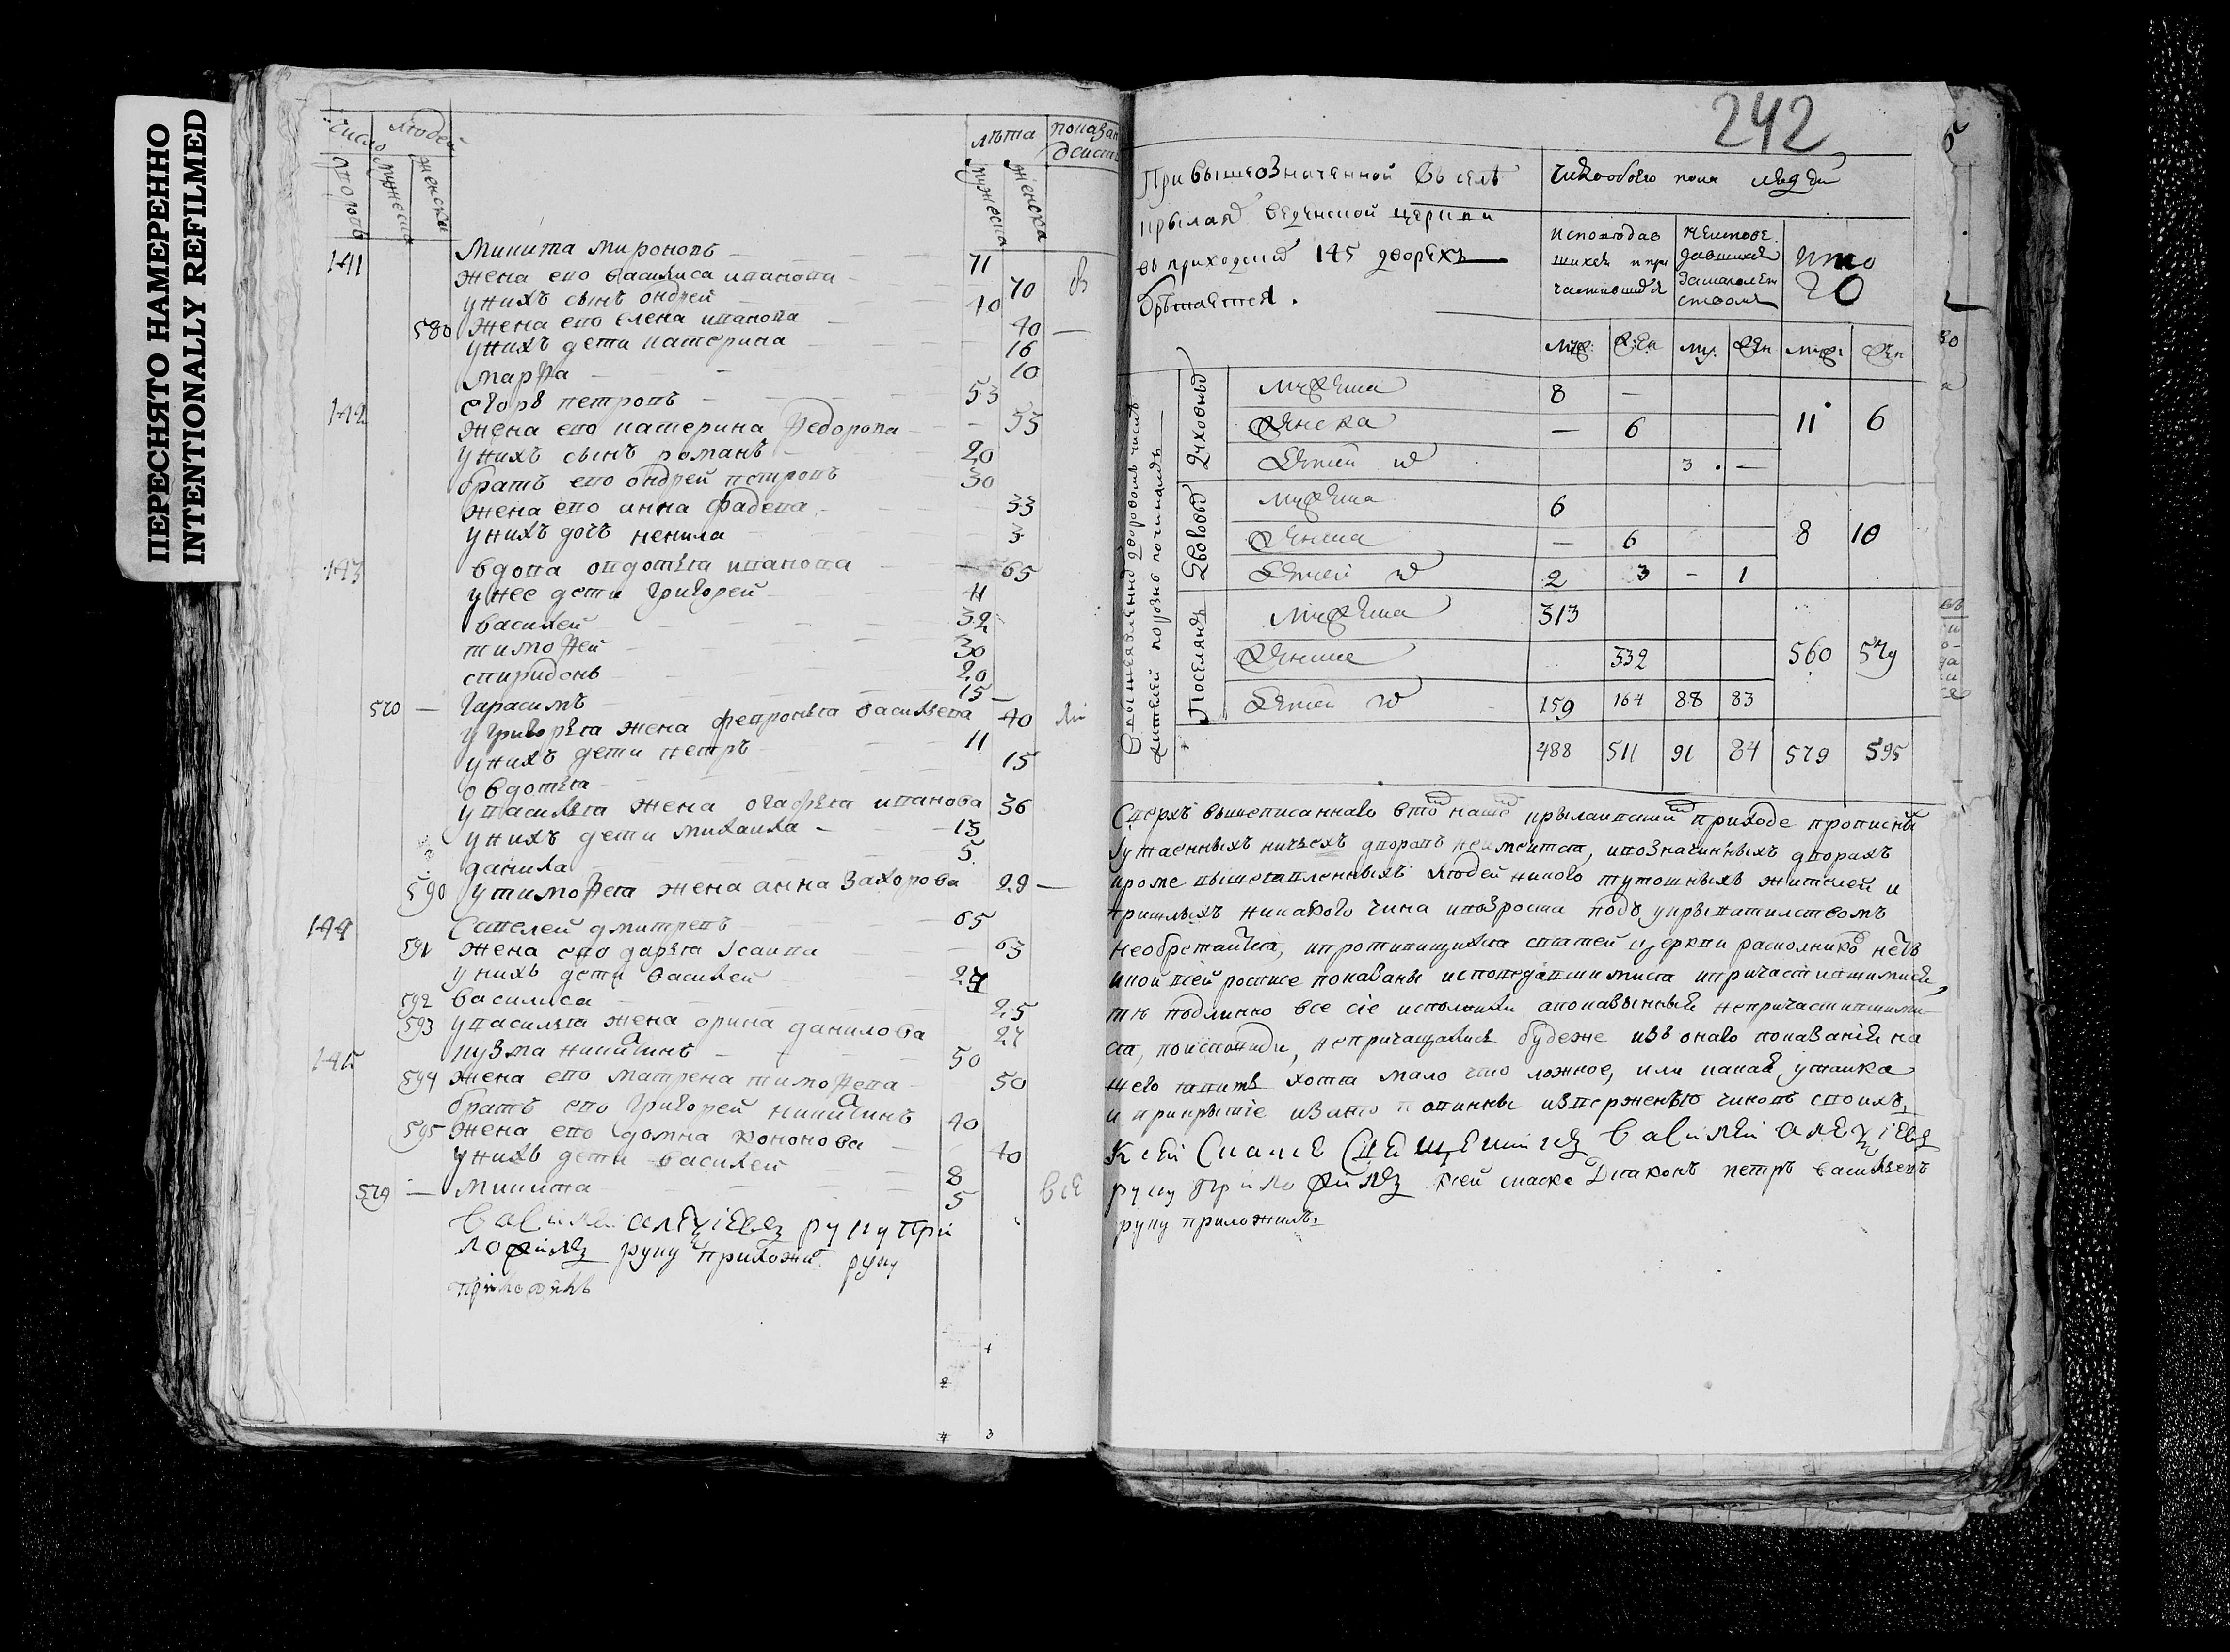 ПЕРЕСНЯТО НАМЕРЕННО
INTENTIONALLY REFILMED
число людей лѣта
дворовъ мужеска женска мужеска женска
141 Микита Мироновъ 71
жена ево василиса иванова 70
у нихъ сынъ ондрей 40
580 жена ево елена иванова 40
у нихъ дети катерина 16
марфа 10
142 егоръ петровъ 53
жена ево катерина федорова 53
у нихъ сынъ романъ 20
братъ ево ондрей петровъ 30
жена ево анна фадева 33
у нихъ дочь ненила 3
143 вдова овдотья иванова 65
у нее дети григорей 41
василей 32
тимофей 30
спиридонъ 20
570 гарасимъ 15
у григорья жена февронья васильева 40
у нихъ дети петръ 11
овдотья 15
у василья жена огафья иванова 36
у нихъ дети михаила 13
данила 5
590 у тимофея жена анна захорова 29
144 савелей дмитревъ 65
591 жена ево дарья исаива 63
у нихъ дети василей 27
592 василиса 25
593 у василья жена орина данилова 27
145 кузма никитинъ 50
594 жена ево матрена тимофева 50
братъ ево григорей никитинъ 40
595 жена ево домна кононова 40
у нихъ дети василей 8
579 микита 5 все
василей алеѯиевъ руку при
ложилъ руку приложи руку
приложилъ
242
При вышеозначенной въ селѣ
крылая веденской церкви
въ приходе 145 дворехъ
обретается
число обоего пола людей
исповѣдав
шихся и при
частившихся
неиспове
давшихся
за малолет
ством
итого
муж жен му жен муж жен
Духовныя
мужеска 8 — 11 6
женска — 6
детей 3 —
мужеска 6 8 10
женска — 6
детей 2 3 — 1
Поселяня
мужеска 313 560 579
женска 332
детей 159 164 88 83
488 511 91 84 579 595
Сверхъ вышеписаннаго в томъ нашемъ крылаивскомъ приходе прописныхъ
утаенныхъ ничьехъ дворовъ неимеится, и в означинныхъ дворахъ
кроме вышеявленныхъ людей никого тутошныхъ жителей и
пришлыхъ никакого чина и возроста подъ укрывателствомъ
необретается, и противящихся святей церкви расколниковъ нетъ
и кои в сей росписе показаны исповедавшимися и причастившимися,
те подлинно все сие исполнили а показынныя непричастившими
ся, по исповеди, непричащались буде же изъ онаго показания на
шего явитъ хотя мало что ложное, или какая утаика
и прикрытие и за то повинны изверженью чиновъ своихъ,
К сей скаске священникъ василей алеѯиевъ
руку приложилъ к сей скаске Диаконъ петръ васильевъ
руку приложилъ